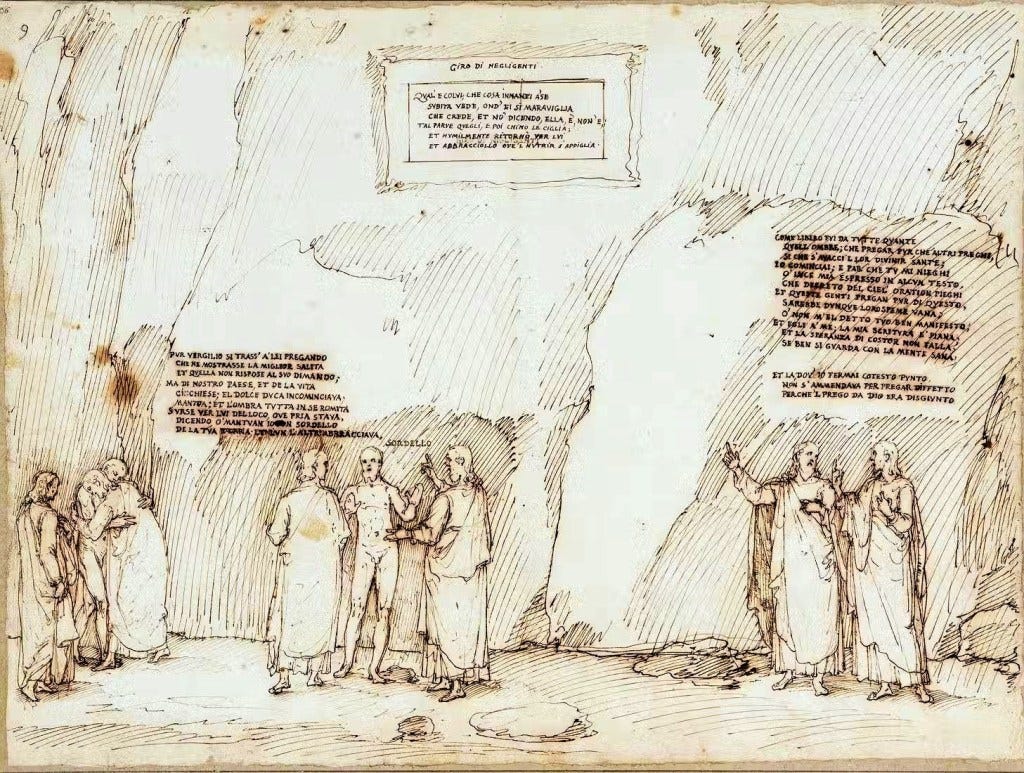 9
GIRO DI NEGLIGENTI.
QUAL È COLVI, CHE COSA INNANZI A SE
SUBITA VEDE, OND' EI SI MARAVIGLIA
CHE CREDE, ET NO' DICENDO, ELLA, È, NON È,
TAL PARVE QVEGLI, E POI CHINÒ LE CIGLIA;
ET HVMILMENTE RITORNÒ VER LVI
ET ABBRACCIOLLO OVE L NVTRIR S APPIGLIA.
COME LIBERO FVI DA TVTTE QVANTE
QVELL' OMBRE; CHE PREGAR PVR CHE ALTRI PREGHE,
SI CHE S'AVACCI L LOR DIVENIR SANTE;
IO COMINCIAI; E PAR CHE TV MI NIEGHI
O LVCE MIA ESPRESSO IN ALCVN TESTO,
CHE DECRETO DEL CIEL' ORATION PIEGHI
ET QVESTE GENTI PREGAN PVR DI QVESTO,
SAREBBE DVNQVE LORO SPEME VANA;
O NON M'È'L DETTO TVO BEN MANIFESTO;
ET EGLI A ME; LA MIA SCRITVRA È PIANA,
ET LA SPERANZA DI COSTOR NON FALLA;
SE BEN SI GVARDA CON LA MENTE SANA,
ET LA DOV' IO FERMAI COTESTO PVNTO
NON S'AMMENDAVA PER PREGAR DIFFETTO
PERCHE'L PREGO DA DIO ERA DISGIVNTO
PVR VERGILIO SI TRASS' A LEI PREGANDO
CHE NE MOSTRASSE LA MIGLIOR SALITA
ET QVELLA NON RISPOSE AL SVO DIMANDO;
MA DI NOSTRO PAESE, ET DE LA VITA
CI CHIESE; EL DOLCE DVCA INCOMINCIAVA;
MANTVA; ET L'OMBRA TVTTA IN SE ROMITA
SVRSE VER LVI DEL LOCO, OVE PRIA STAVA,
DICENDO O MANTVAN IO SON SORDELLO
DE LA TVA L'ALTR ABBRACCIAVA
SORDELLO